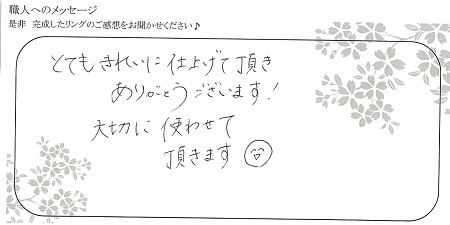 職人へのメッセージ
是非 完成したリングのご感想をお聞かせください♪
とてもきれいに仕上げて頂き
ありがとうございます!
大切に使わせて
頂きます